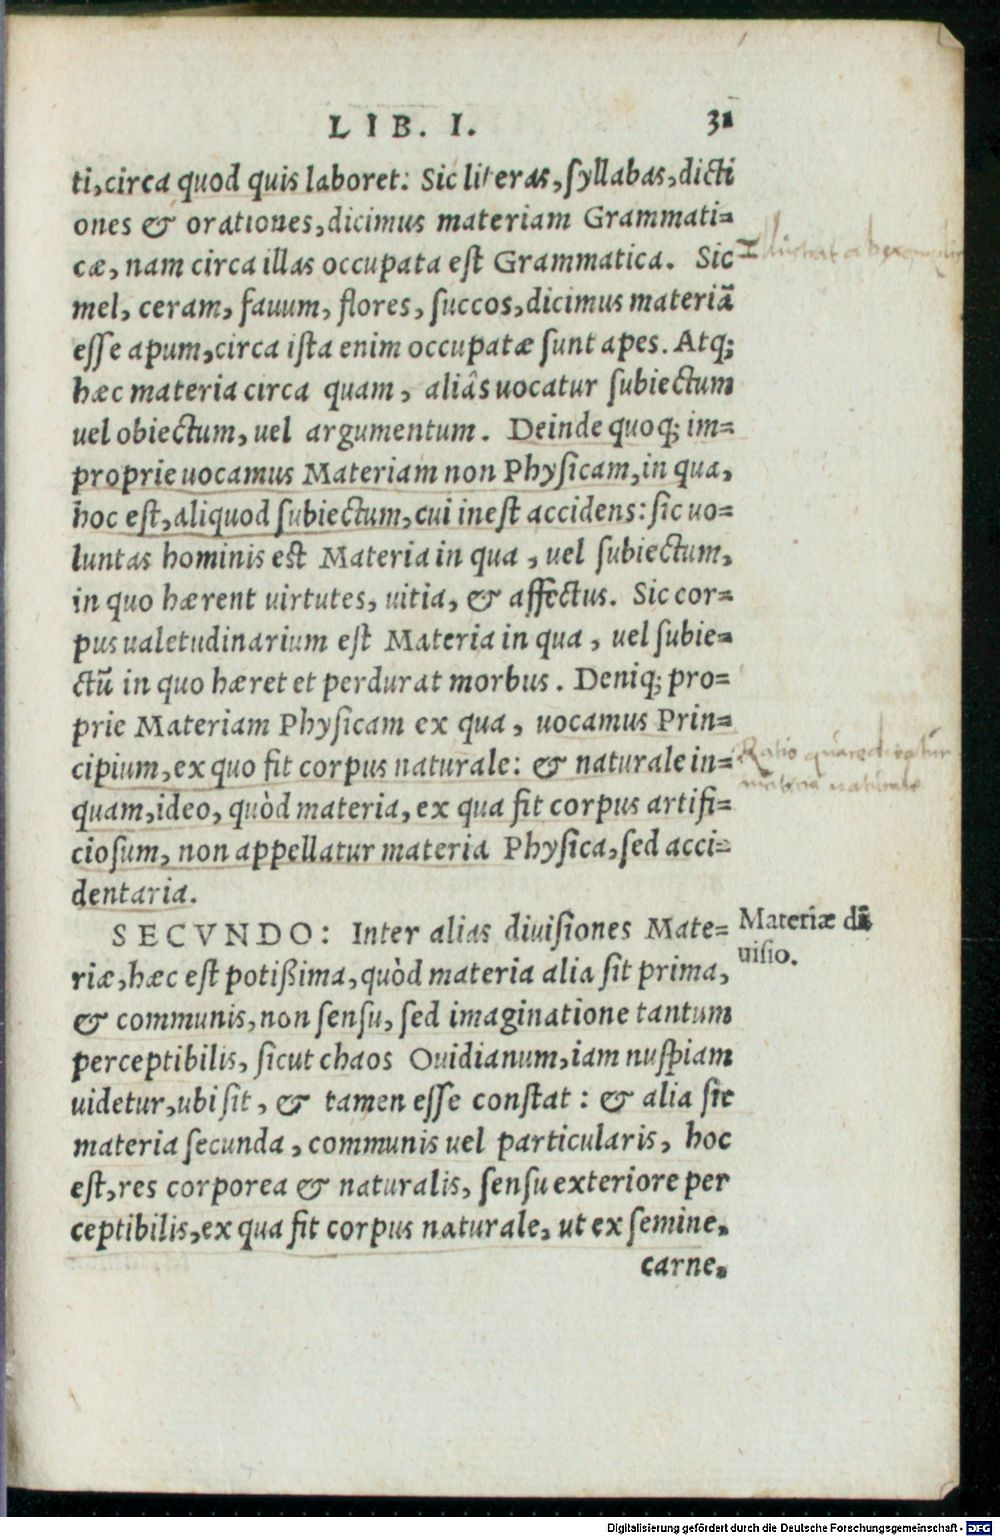 LIB. I. 31
ti, circa quod quis laboret: Sic literas, syllabas, dicti
ones & orationes, dicimus materiam Grammati=
cæ, nam circa illas occupata est Grammatica. Sic
mel, ceram, fauum, flores, succos, dicimus materiā
esse apum, circa ista enim occupatæ sunt apes. Atq;
hæc materia circa quam, aliâs uocatur subiectum
uel obiectum, uel argumentum. Deinde quoq; im=
proprie uocamus Materiam non Physicam, in qua,
hoc est, aliquod subiectum, cui inest accidens: sic uo=
luntas hominis est Materia in qua, uel subiectum,
in quo hærent uirtutes, uitia, & affectus. Sic cor=
pus ualetudinarium est Materia in qua, uel subie=
ctū in quo hæret et perdurat morbus. Deniq; pro=
prie Materiam Physicam ex qua, uocamus Prin=
cipium, ex quo fit corpus naturale: & naturale in=
quam, ideo, quòd materia, ex qua fit corpus artifi=
ciosum, non appellatur materia Physica, sed acci=
dentaria.
Ratio quare dicatur
materia naturale
SECVNDO: Inter alias diuisiones Mate=
riæ, hæc est potißima, quòd materia alia sit prima,
& communis, non sensu, sed imaginatione tantum
perceptibilis, sicut chaos Ouidianum, iam nuspiam
uidetur, ubi sit, & tamen esse constat: & alia sit
materia secunda, communis uel particularis, hoc
est, res corporea & naturalis, sensu exteriore per
ceptibilis, ex qua fit corpus naturale, ut ex semine,
carne,
Materiæ di
uisio.
Digitalisierung gefördert durch die Deutsche Forschungsgemeinschaft - DFG